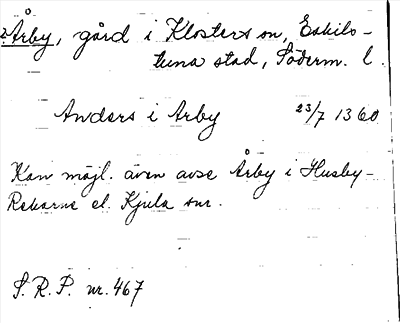 2 Årby, gård i Klosters sn, Eskils-
tuna stad, Söderm. l.
Anders i Arby 23/7 1360
Kan möjl. även avse Årby i Husby-
Rekarne el. Kjula snr.
S. R. P. nr. 467